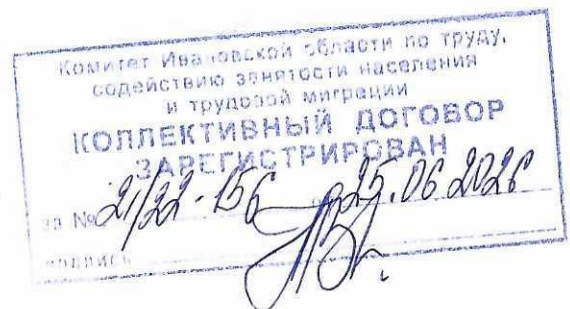 Комитет Ивановской области по труду,
содействию занятости населения
и трудовой миграции
КОЛЛЕКТИВНЫЙ ДОГОВОР
ЗАРЕГИСТРИРОВАН
за № 21/22-156 25.06.2026
подпись